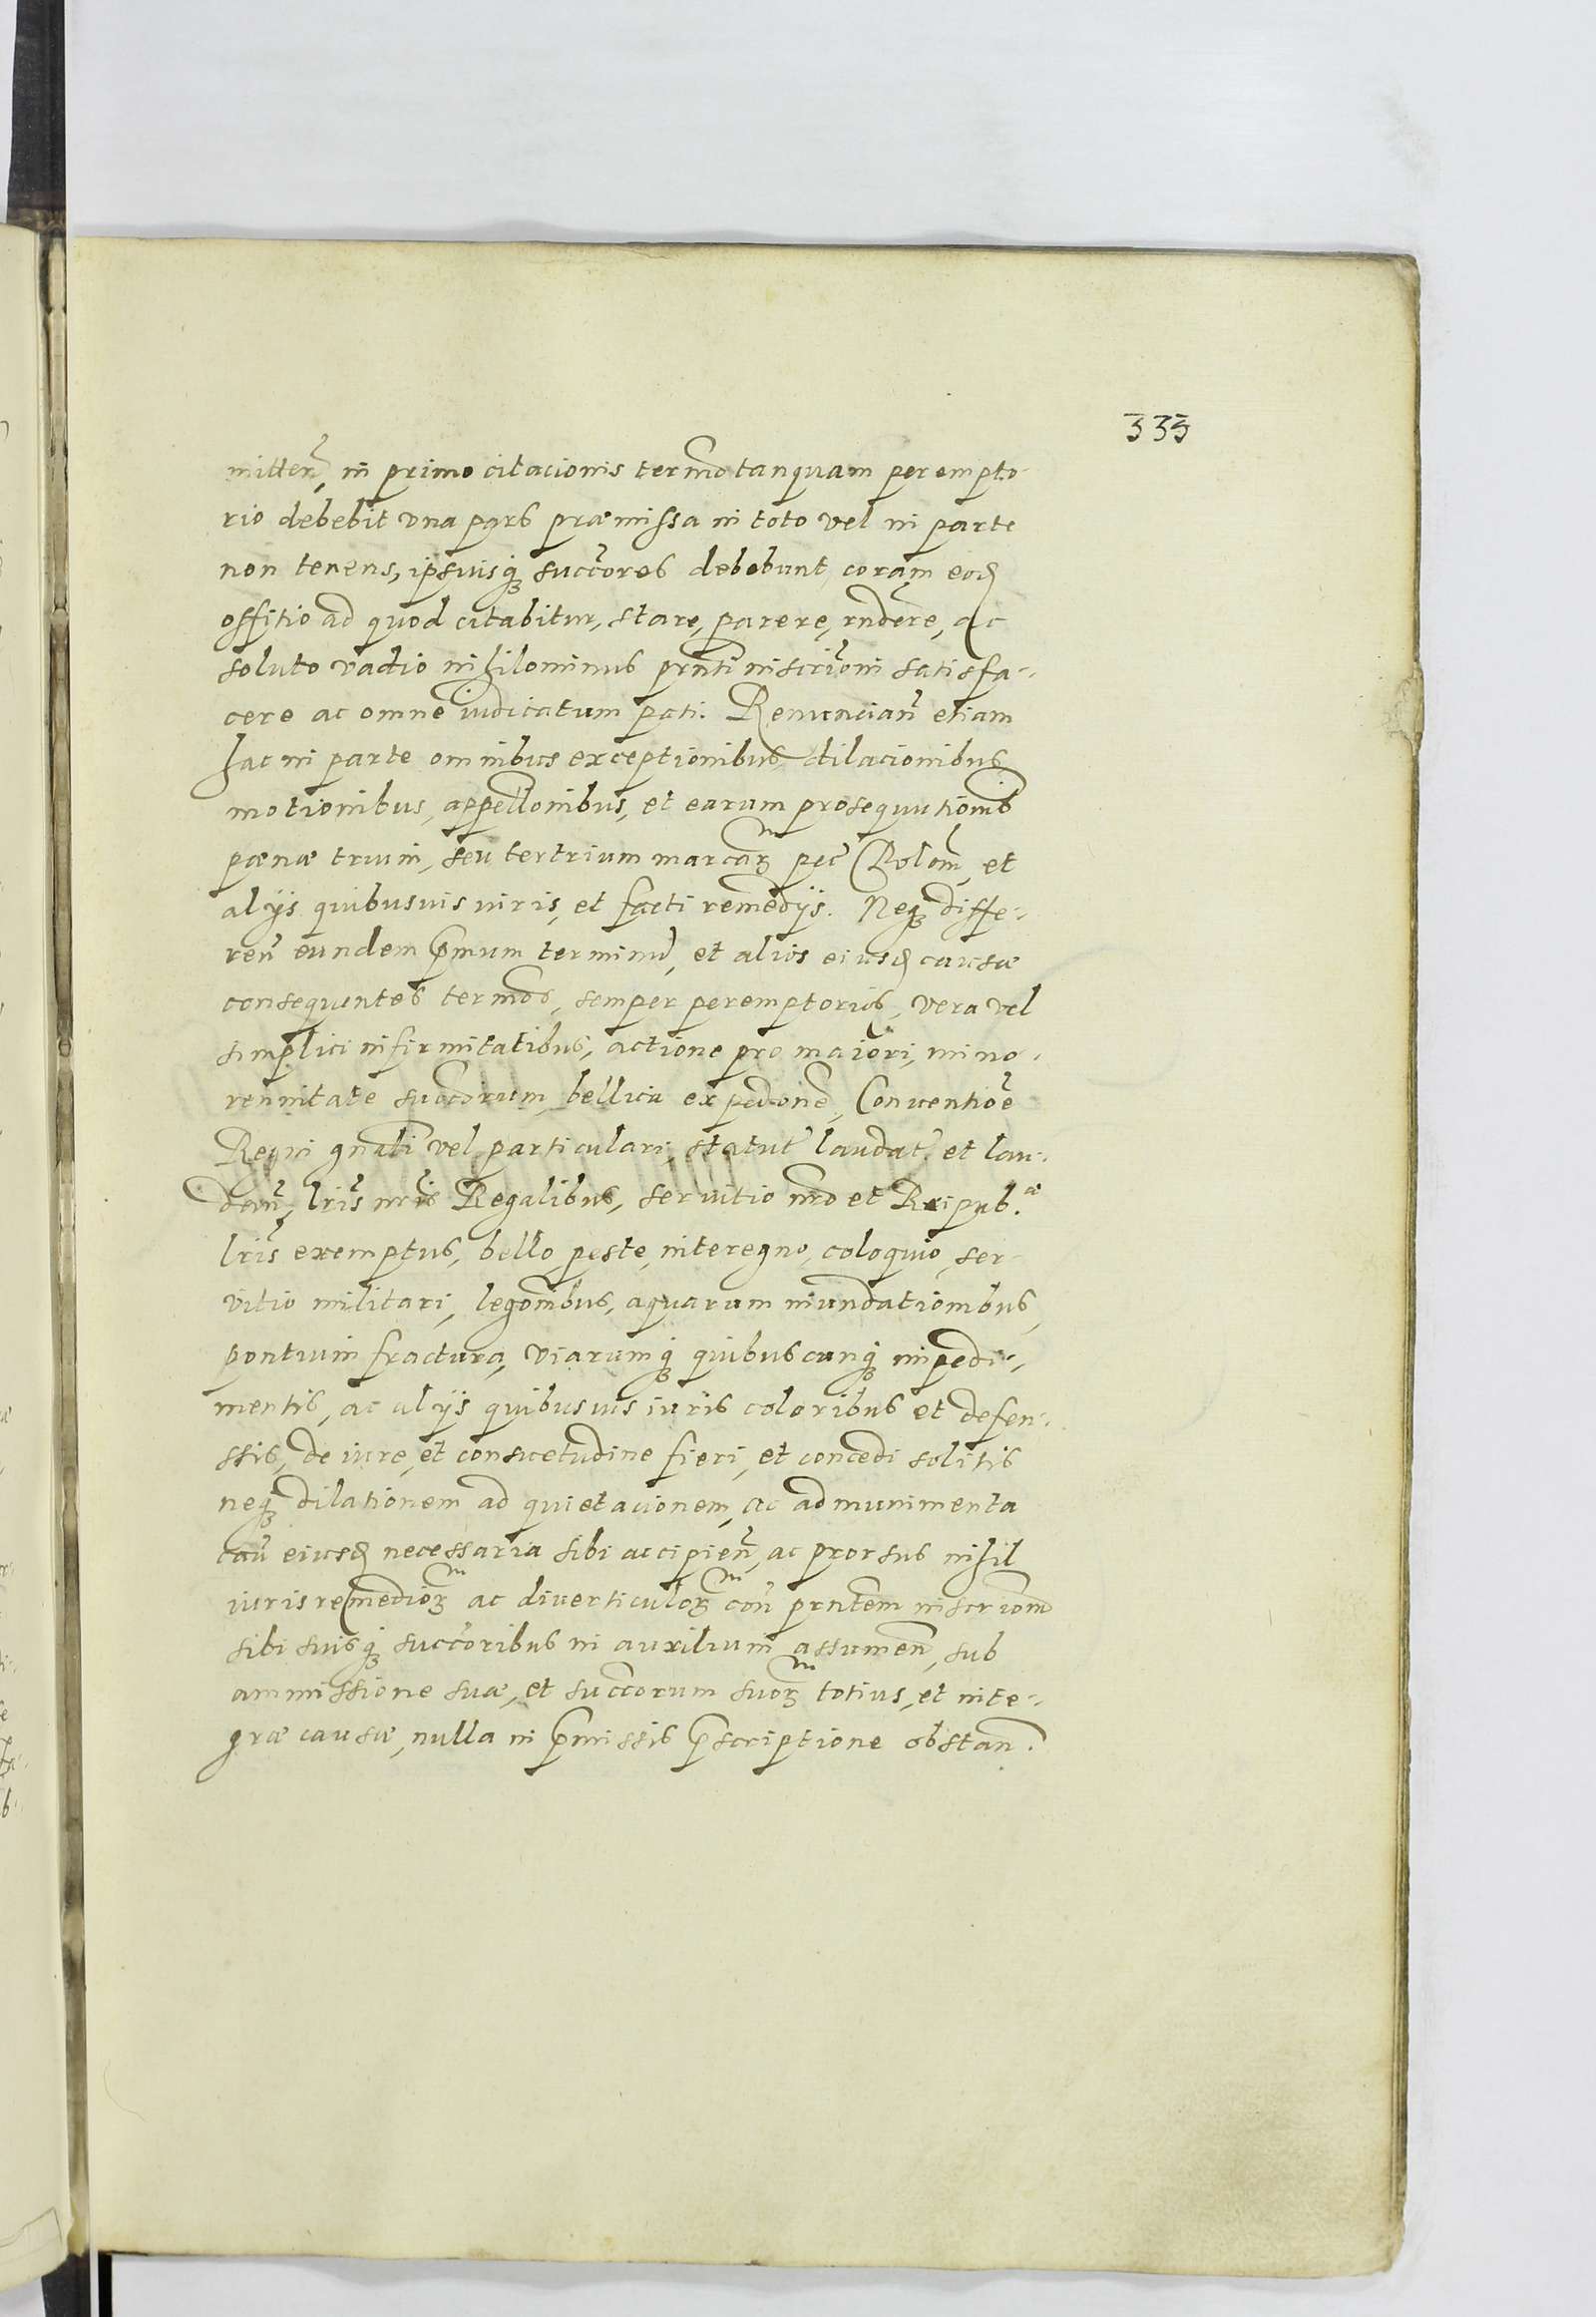 335
mitten̄, in primo citacionis termo tanquam perempto-
rio debebit vna pars præmissa in toto vel in parte
non tenens, ipsuisq3 succores debebunt, coram eod
offitio ad quod citabitur, stare, parere, rndere, ac
soluto vadio nihilominus prnti inscrioni satisfa-
cere ac omne iudicatum pati. Renuncian̄ etiam
hac in parte omnibus exceptionibus dilacionibus
motionibus, appellonibus, et earum prosequutionib
pœnæ trium, seu tertrium marcar3 pec̄ Polon̄, et
alijs quibusuis iuris, et facti remedijs. Neq3 diffe-
ren̄ eundem pmum terminū, et alios eiusd causæ
consequentes termos, semper peremptorios, vera vel
simplici infirmitatibus, actione pro maiori, mino-
rennitate succorum, bellica expedone, Conuentioe
Regni gnali vel particulari, statut̄ laudat̄ et lau-
dan̄, lris nris Regalibus, seruitio nro et Reipub.æ
lris exemptus, bello, peste, interegno, coloquio, ser-
vitio militari, legonibus, aquarum inundationibus,
pontium fractura, viarumq3 quibuscunq3 impedi-
mentis, ac alijs quibusuis iuris coloribus et defen-
ssis, de iure, et consuetudine fieri, et concedi solitis
neq3 dilationem ad quietacionem, ac ad munimenta
caū eiusd necessaria sibi accipien̄, ac prorsus nihil
iuris remedior3 ac diuerticulor3 con̄ prntem inscrionem
sibi suisq3 succoribus in auxilium assumen̄, sub
ammissione suæ, et succorum suor3 totius, et inte-
græ causæ, nulla in pmissis pscriptione obstan̄.